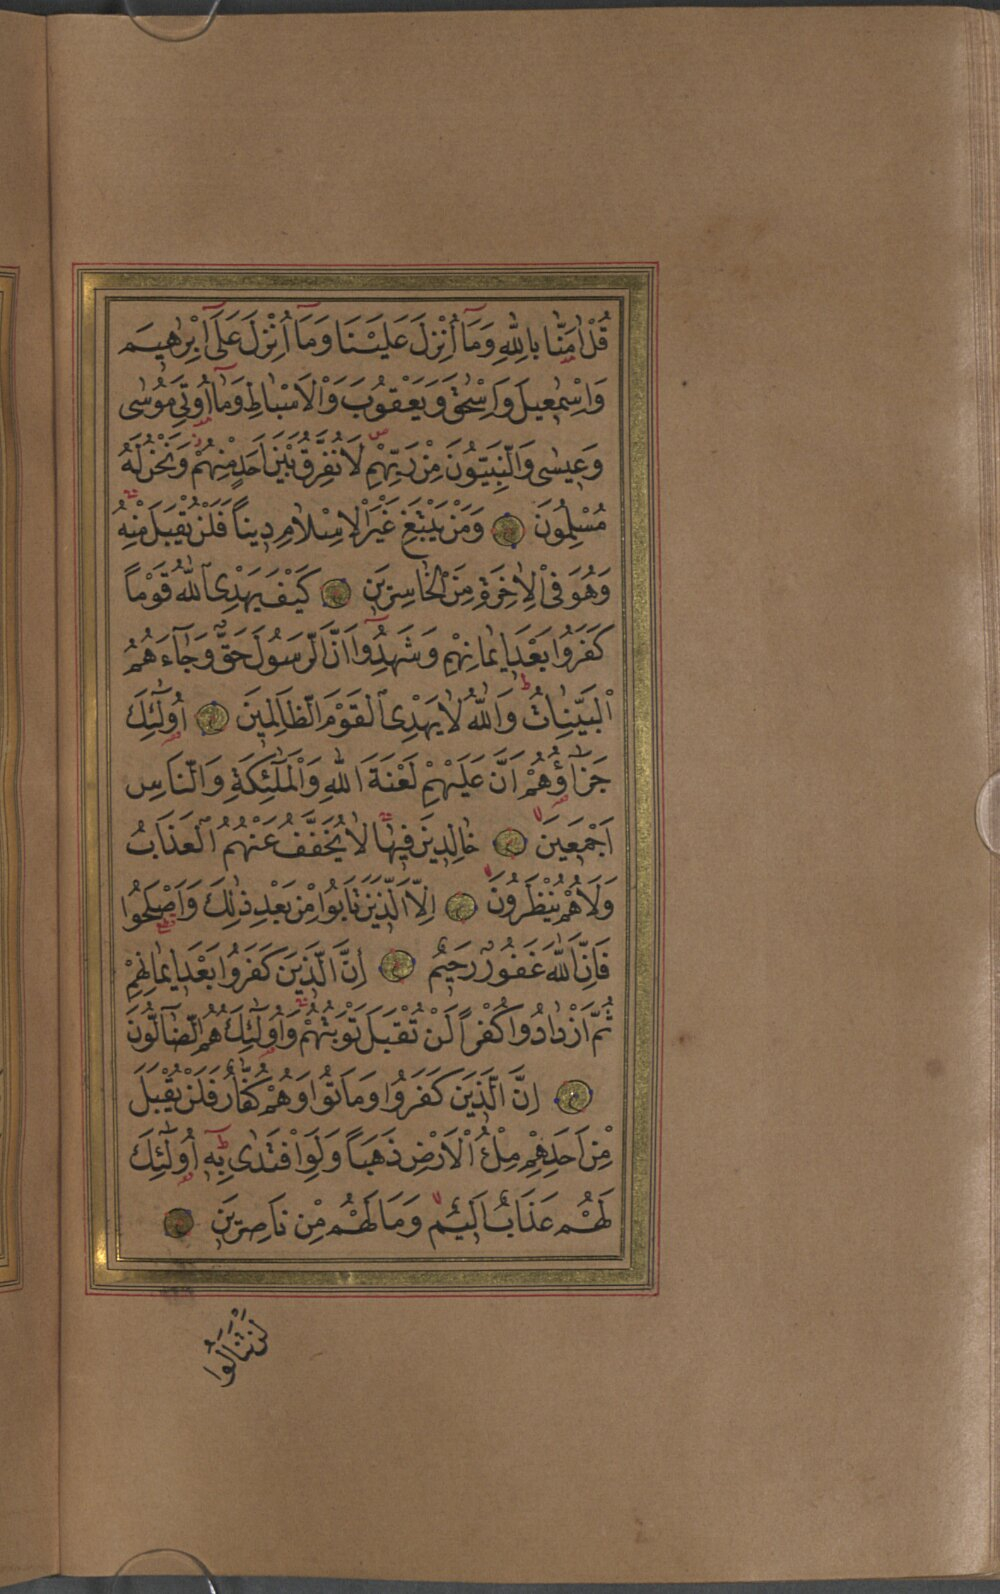 قُلْ اٰمَنَّا بِاللّٰهِ وَمَٓا اُنْزِلَ عَلَيْنَا وَمَٓا اُنْزِلَ عَلٰٓى اِبْرٰهِيمَ
وَاِسْمٰعِيلَ وَاِسْحٰقَ وَيَعْقُوبَ وَالْاَسْبَاطِ وَمَٓا اُوتِيَ مُوسٰى
وَعِيسٰى وَالنَّبِيُّونَ مِنْ رَبِّهِمْ لَا نُفَرِّقُ بَيْنَ اَحَدٍ مِنْهُمْ وَنَحْنُ لَهُ
مُسْلِمُونَ ۝ وَمَنْ يَبْتَغِ غَيْرَ الْاِسْلَامِ دِيناً فَلَنْ يُقْبَلَ مِنْهُ
وَهُوَ فِى الْاٰخِرَةِ مِنَ الْخَاسِرِينَ ۝ كَيْفَ يَهْدِى اللّٰهُ قَوْماً
كَفَرُوا بَعْدَ اِيمَانِهِمْ وَشَهِدُٓوا اَنَّ الرَّسُولَ حَقٌّ وَجَٓاءَهُمُ
الْبَيِّنَاتُ وَاللّٰهُ لَا يَهْدِى الْقَوْمَ الظَّالِمِينَ ۝ اُولٰٓئِكَ
جَزَٓاؤُهُمْ اَنَّ عَلَيْهِمْ لَعْنَةَ اللّٰهِ وَالْمَلٰٓئِكَةِ وَالنَّاسِ
اَجْمَعِينَ ۝ خَالِدِينَ فِيهَا لَا يُخَفَّفُ عَنْهُمُ الْعَذَابُ
وَلَا هُمْ يُنْظَرُونَ ۝ اِلَّا الَّذِينَ تَابُوا مِنْ بَعْدِ ذٰلِكَ وَاَصْلَحُوا
فَاِنَّ اللّٰهَ غَفُورٌ رَحِيمٌ ۝ اِنَّ الَّذِينَ كَفَرُوا بَعْدَ اِيمَانِهِمْ
ثُمَّ ازْدَادُوا كُفْراً لَنْ تُقْبَلَ تَوْبَتُهُمْ وَاُولٰٓئِكَ هُمُ الضَّٓالُّونَ
۝ اِنَّ الَّذِينَ كَفَرُوا وَمَاتُوا وَهُمْ كُفَّارٌ فَلَنْ يُقْبَلَ
مِنْ اَحَدِهِمْ مِلْءُ الْاَرْضِ ذَهَباً وَلَوِ افْتَدٰى بِهِ اُولٰٓئِكَ
لَهُمْ عَذَابٌ اَلِيمٌ وَمَا لَهُمْ مِنْ نَاصِرِينَ ۝
لَنْ تَنَالُوا